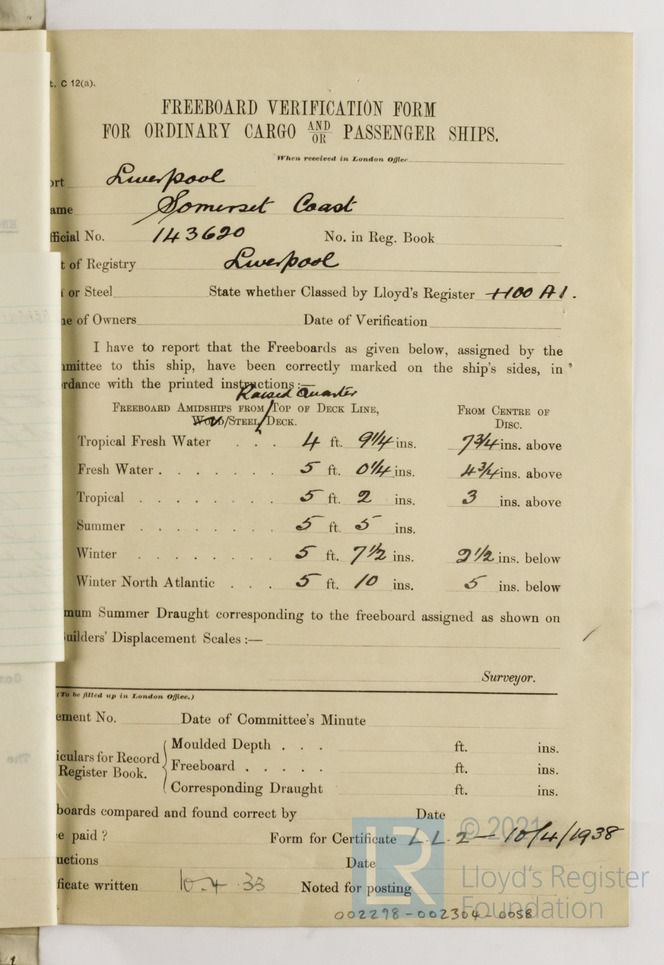 t. C 12(a).
FREEBOARD VERIFICATION FORM
FOR ORDINARY CARGO AND/OR PASSENGER SHIPS.
When received in London Office
ort Liverpool
ame Somerset Coast
fficial No. 143620 No. in Reg. Book
t of Registry Liverpool
or Steel State whether Classed by Lloyd's Register +100 A1.
e of Owners Date of Verification
I have to report that the Freeboards as given below, assigned by the
mmittee to this ship, have been correctly marked on the ship's sides, in
rdance with the printed instructions:—
Raised Quarter
FREEBOARD AMIDSHIPS FROM TOP OF DECK LINE, FROM CENTRE OF
WOOD/STEEL/DECK. DISC.
Tropical Fresh Water . . . 4 ft. 9 1/4 ins. 7 3/4 ins. above
Fresh Water . . . . . . . 5 ft. 0 1/4 ins. 4 3/4 ins. above
Tropical . . . . . . . . 5 ft. 2 ins. 3 ins. above
Summer . . . . . . . . 5 ft 5 ins.
Winter . . . . . . . . 5 ft. 7 1/2 ins. 2 1/2 ins. below
Winter North Atlantic . . . 5 ft. 10 ins. 5 ins. below
mum Summer Draught corresponding to the freeboard assigned as shown on
uilders' Displacement Scales :—
Surveyor.
(To be filled up in London Office.)
ement No. Date of Committee's Minute
Moulded Depth . . . ft. ins.
iculars for Record
Freeboard . . . . . ft. ins.
Register Book.
Corresponding Draught ft. ins.
boards compared and found correct by Date
e paid ? Form for Certificate L.L.2 — 10/4/1938
uctions Date
ficate written 10.4.33 Noted for posting
002298-002304-0058
LR
© 2021
Lloyd's Register
Foundation